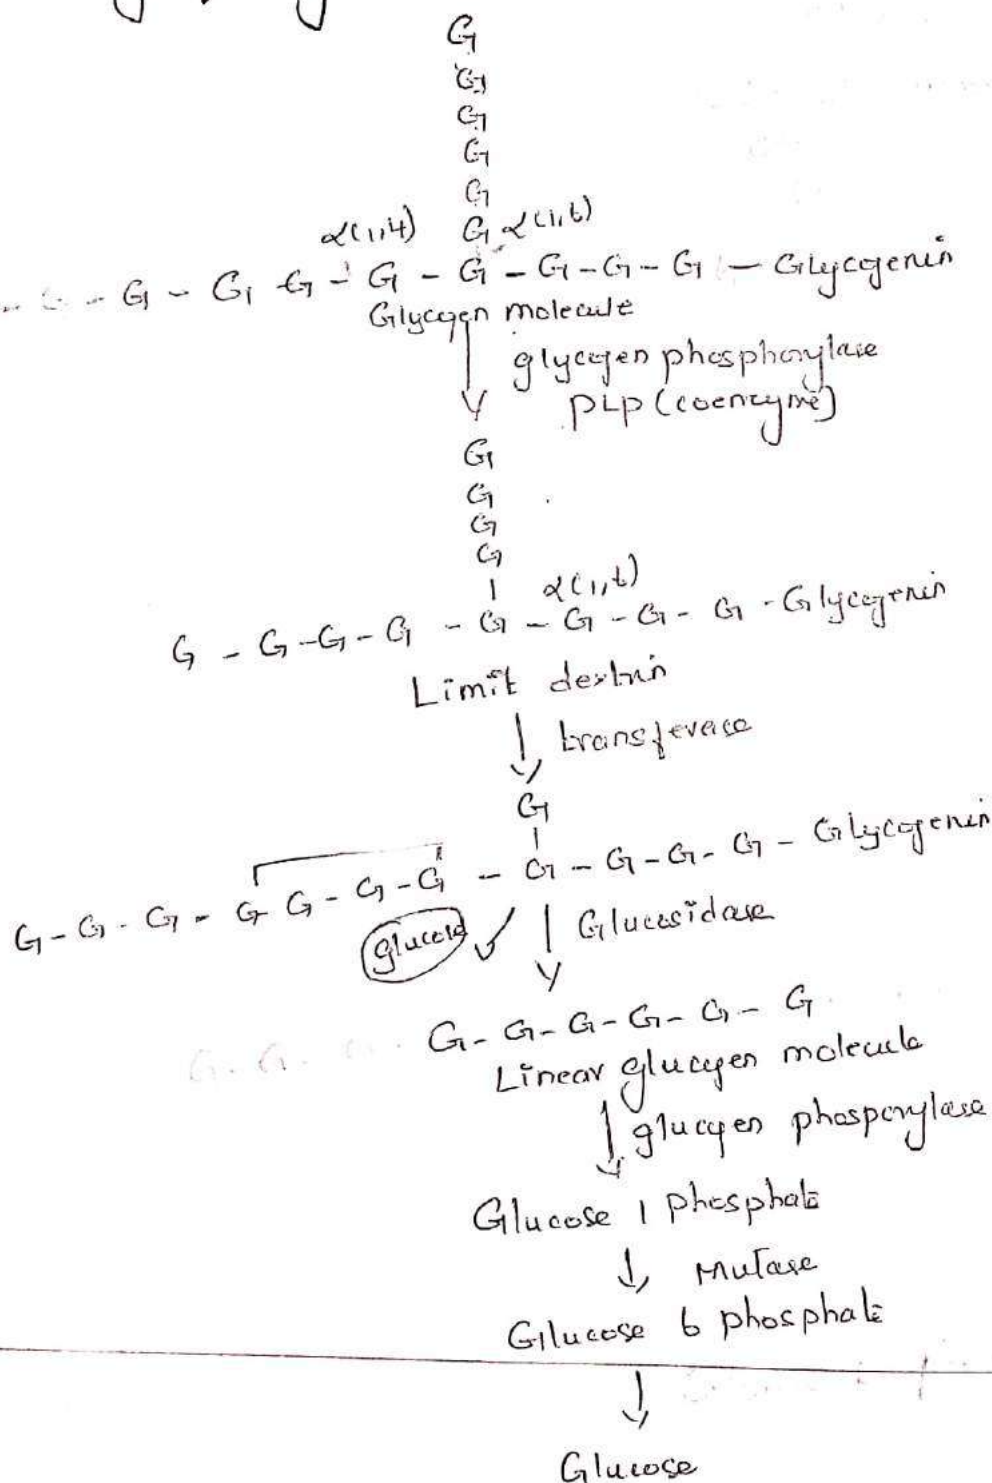 G
G
G
G
G
α(1,4) G α(1,6)
G - G G - G - G - G - G - G - Glycogenin
Glycogen molecule
glycogen phosphorylase
PLP (coenzyme)
G
G
G
G
α(1,6)
G - G - G - G - G - G - G - G - Glycogenin
Limit dextrin
transferase
G
G - G - G - G G - G - G - G - G - G - G - Glycogenin
glucose Glucosidase
G - G - G - G - G - G
Linear glucogen molecule
glucogen phosporylase
Glucose 1 phosphate
Mutase
Glucose 6 phosphate
Glucose